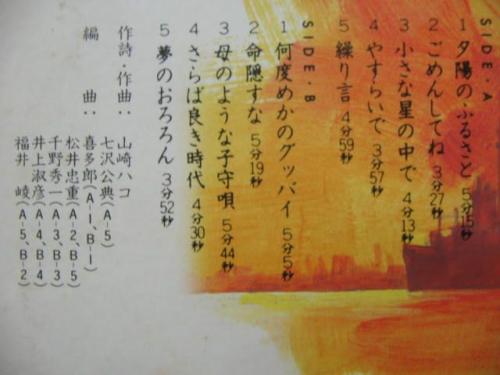 SIDE・A
1 夕陽のふるさと 5分15秒
2 ごめんしてね 3分27秒
3 小さな星の中で 4分13秒
4 やすらいで 3分57秒
5 繰り言 4分59秒
SIDE・B
1 何度めかのグッバイ 5分5秒
2 命隠すな 5分19秒
3 母のような子守唄 5分44秒
4 さらば良き時代 4分30秒
5 夢のおろろん 3分52秒
作詩・作曲：山崎ハコ
七沢公典(A-5)
編曲：喜多郎(A-1、B-1)
松井忠重(A-2、B-5)
千野秀一(A-3、B-3)
井上淑彦(A-4、B-4)
福井 崚(A-5、B-2)